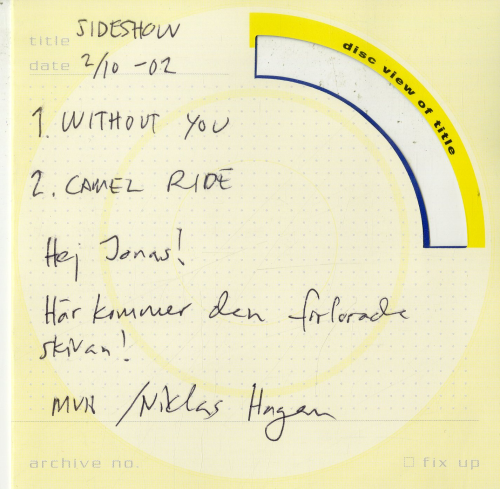 title SIDESHOW
date 2/10 -02
disc view of title
1. WITHOUT YOU
2. CAMEL RIDE
Hej Jonas!
Här kommer den förlorade
skivan!
MVH /Niklas Hagen
archive no.
fix up